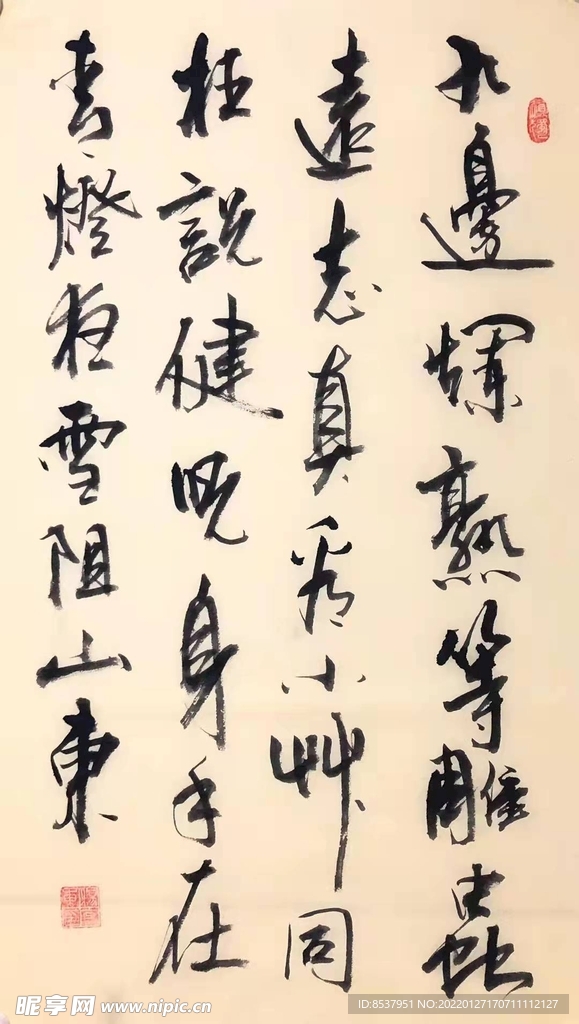 九邊爛熟等雕蟲
遠志真看小艸同
枉說健兒身手在
青燈夜雪阻山東
昵享网 www.nipic.cn
ID:8537951 NO:20220127170711112127